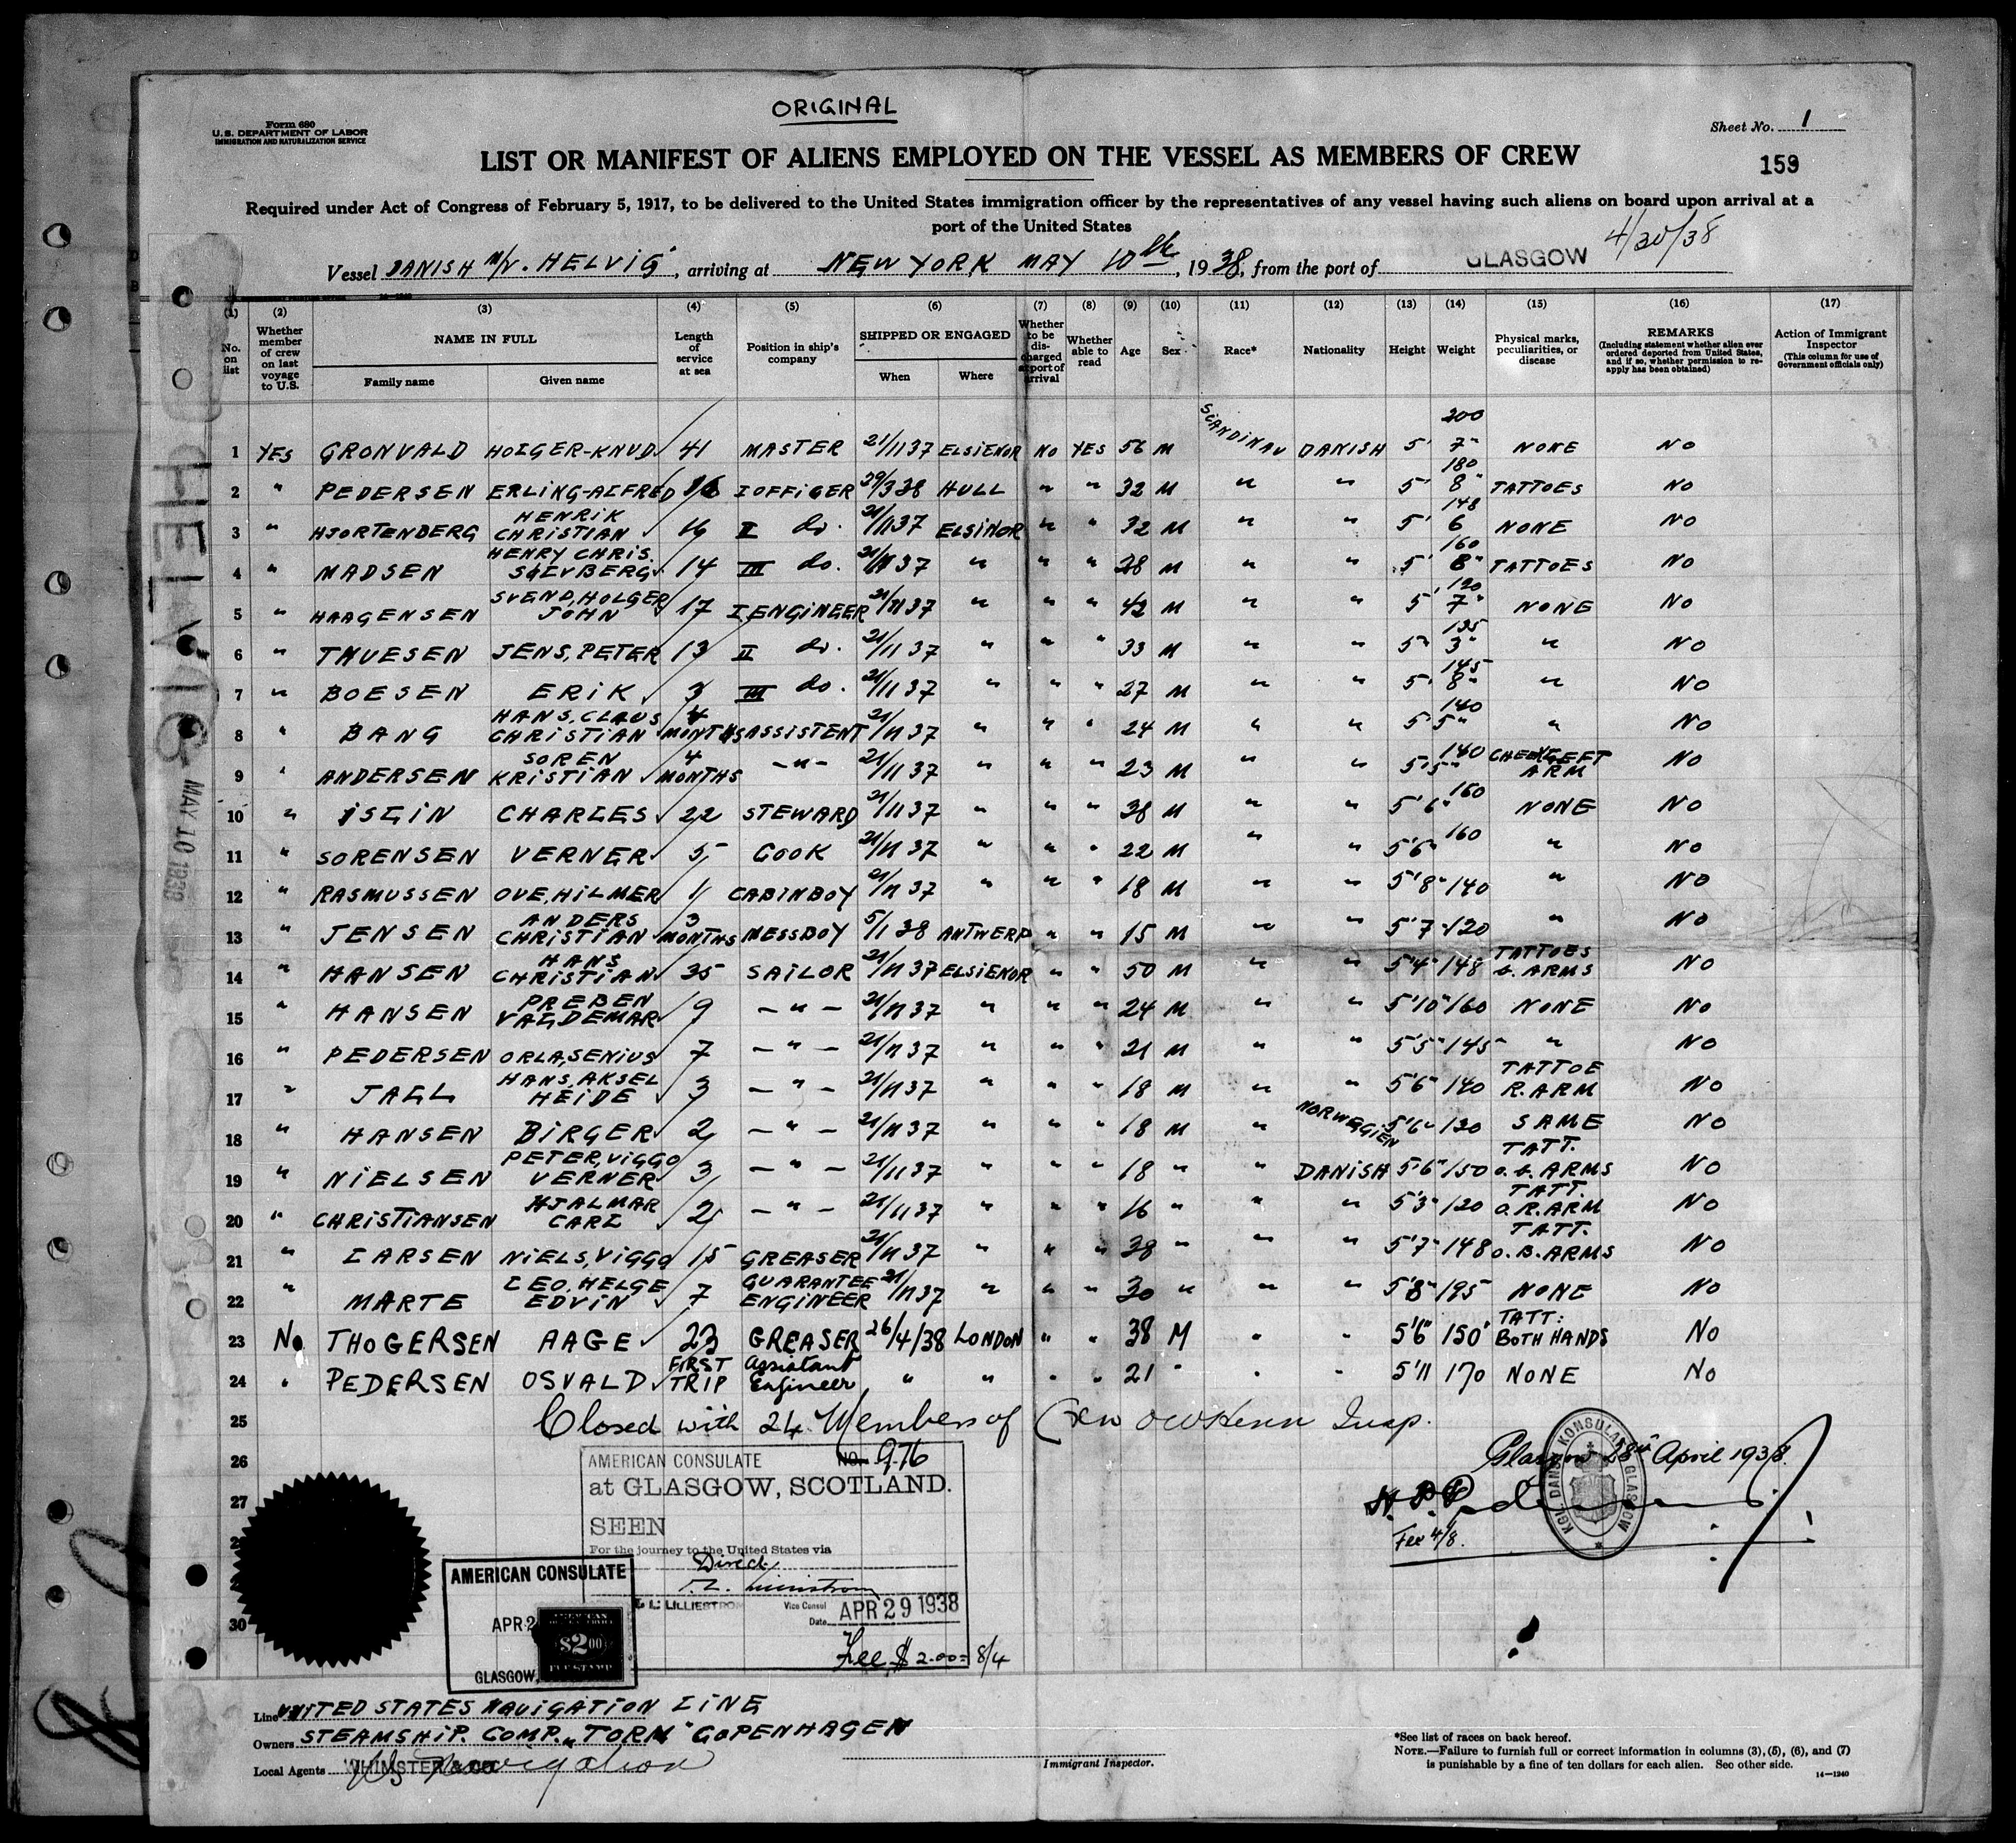 ORIGINAL
Form 680
U.S. DEPARTMENT OF LABOR
IMMIGRATION AND NATURALIZATION SERVICE
Sheet No. 1
LIST OR MANIFEST OF ALIENS EMPLOYED ON THE VESSEL AS MEMBERS OF CREW
159
Required under Act of Congress of February 5, 1917, to be delivered to the United States immigration officer by the representatives of any vessel having such aliens on board upon arrival at a
port of the United States
4/30/38
Vessel DANISH M/V. HELVIG, arriving at NEW YORK MAY 10th, 1938, from the port of GLASGOW
(1) (2) (3) (4) (5) (6) (7) (8) (9) (10) (11) (12) (13) (14) (15) (16) (17)
No. on list
Whether member of crew on last voyage to U.S.
NAME IN FULL
Family name Given name
Length of service at sea
Position in ship's company
SHIPPED OR ENGAGED
When Where
Whether to be discharged at port of arrival
Whether able to read
Age
Sex
Race*
Nationality
Height
Weight
Physical marks, peculiarities, or disease
REMARKS
(Including statement whether alien ever ordered deported from United States, and if so, whether permission to reapply has been obtained)
Action of Immigrant Inspector
(This column for use of Government officials only)
1 YES GRONVALD HOLGER-KNUD 41 MASTER 21/11 37 ELSIENOR NO YES 56 M SCANDINAV DANISH 5' 7" 200 NONE NO
2 " PEDERSEN ERLING-ALFRED 16 I OFFICER 29/3 38 HULL " " 32 M " " 5' 8" 180 TATTOES NO
3 " HJORTENBERG HENRIK CHRISTIAN 16 II do. 21/11 37 ELSINOR " " 32 M " " 5' 6 148 NONE NO
4 " MADSEN HENRY CHRIS. SØLVBERG 14 III do. 21/11 37 " " " 28 M " " 5' 8" 160 TATTOES NO
5 " HAAGENSEN SVEND, HOLGER JOHN 17 I ENGINEER 21/11 37 " " " 42 M " " 5' 7" 190 NONE NO
6 " THUESEN JENS, PETER 13 II do. 21/11 37 " " " 33 M " " 5" 3" 135 " NO
7 " BOESEN ERIK 3 III do. 21/11 37 " " " 27 M " " 5' 8" 145 " NO
8 " BANG HANS, CLAUS CHRISTIAN 4 MONTHS ASSISTENT 21/11 37 " " " 24 M " " 5'5" 140 " NO
9 " ANDERSEN SOREN KRISTIAN 4 MONTHS -"- 21/11 37 " " " 23 M " " 5'5" 140 LEFT ARM NO
10 " ISLIN CHARLES 22 STEWARD 21/11 37 " " " 38 M " " 5'6" 160 NONE NO
11 " SORENSEN VERNER 5 COOK 21/11 37 " " " 22 M " " 5'6" 160 " NO
12 " RASMUSSEN OVE, HILMER 1 CABINBOY 21/11 37 " " " 18 M " " 5'8" 140 " NO
13 " JENSEN ANDERS CHRISTIAN 3 MONTHS MESSBOY 5/1 38 ANTWERP " " 15 M " " 5'7" 120 " NO
14 " HANSEN HANS CHRISTIAN 35 SAILOR 21/11 37 ELSIENOR " " 50 M " " 5'4" 148 TATTOES b. ARMS NO
15 " HANSEN PREBEN VALDEMAR 9 -"- 21/11 37 " " " 24 M " " 5'10" 160 NONE NO
16 " PEDERSEN ORLA, SENIUS 7 -"- 21/11 37 " " " 21 M " " 5'5" 145 " NO
17 " JALL HANS, AKSEL HEIDE 3 -"- 21/11 37 " " " 18 M " " 5'6" 140 TATTOE R. ARM NO
18 " HANSEN BIRGER 2 -"- 21/11 37 " " " 18 M " NORWEGIEN 5'6" 130 SAME NO
19 " NIELSEN PETER, VIGGO VERNER 3 -"- 21/11 37 " " " 18 " " DANISH 5'6" 150 TATT. o. b. ARMS NO
20 " CHRISTIANSEN HJALMAR CARL 2 -"- 21/11 37 " " " 16 " " " 5'3" 120 TATT. O. R. ARM NO
21 " LARSEN NIELS, VIGGO 15 GREASER 21/11 37 " " " 38 " " " 5'7" 148 TATT. O. B. ARMS NO
22 " MARTE LEO. HELGE EDVIN 7 GUARANTEE ENGINEER 21/11 37 " " " 30 " " " 5'8" 195 NONE NO
23 No THOGERSEN AAGE 23 GREASER 26/4/38 LONDON " " 38 M " " 5'6" 150 TATT: BOTH HANDS No
24 " PEDERSEN OSVALD FIRST TRIP Assistant Engineer " " " " 21 " " " 5'11 170 NONE No
25 Closed with 24 Members of Crew Insp.
26
27
30
AMERICAN CONSULATE No. 976
at GLASGOW, SCOTLAND.
SEEN
For the journey to the United States via
Direct
LILLIESTROM Vice Consul
Date APR 29 1938
Fee $ 2.00= 8/4
AMERICAN CONSULATE
APR 2
GLASGOW,
AMERICAN
$2.00
FEE STAMP
Glasgow 28th April 1938.
KGL. DANSK KONSULAT GLASGOW
Fee 4/8.
HELVIG
MAY 10 1938
Line UNITED STATES NAVIGATION LINE
Owners STEAMSHIP. COMP. "TORM" COPENHAGEN
Local Agents US Navigation
WHIMSTER & CO
Immigrant Inspector.
*See list of races on back hereof.
NOTE.—Failure to furnish full or correct information in columns (3), (5), (6), and (7)
is punishable by a fine of ten dollars for each alien. See other side.
14—1240